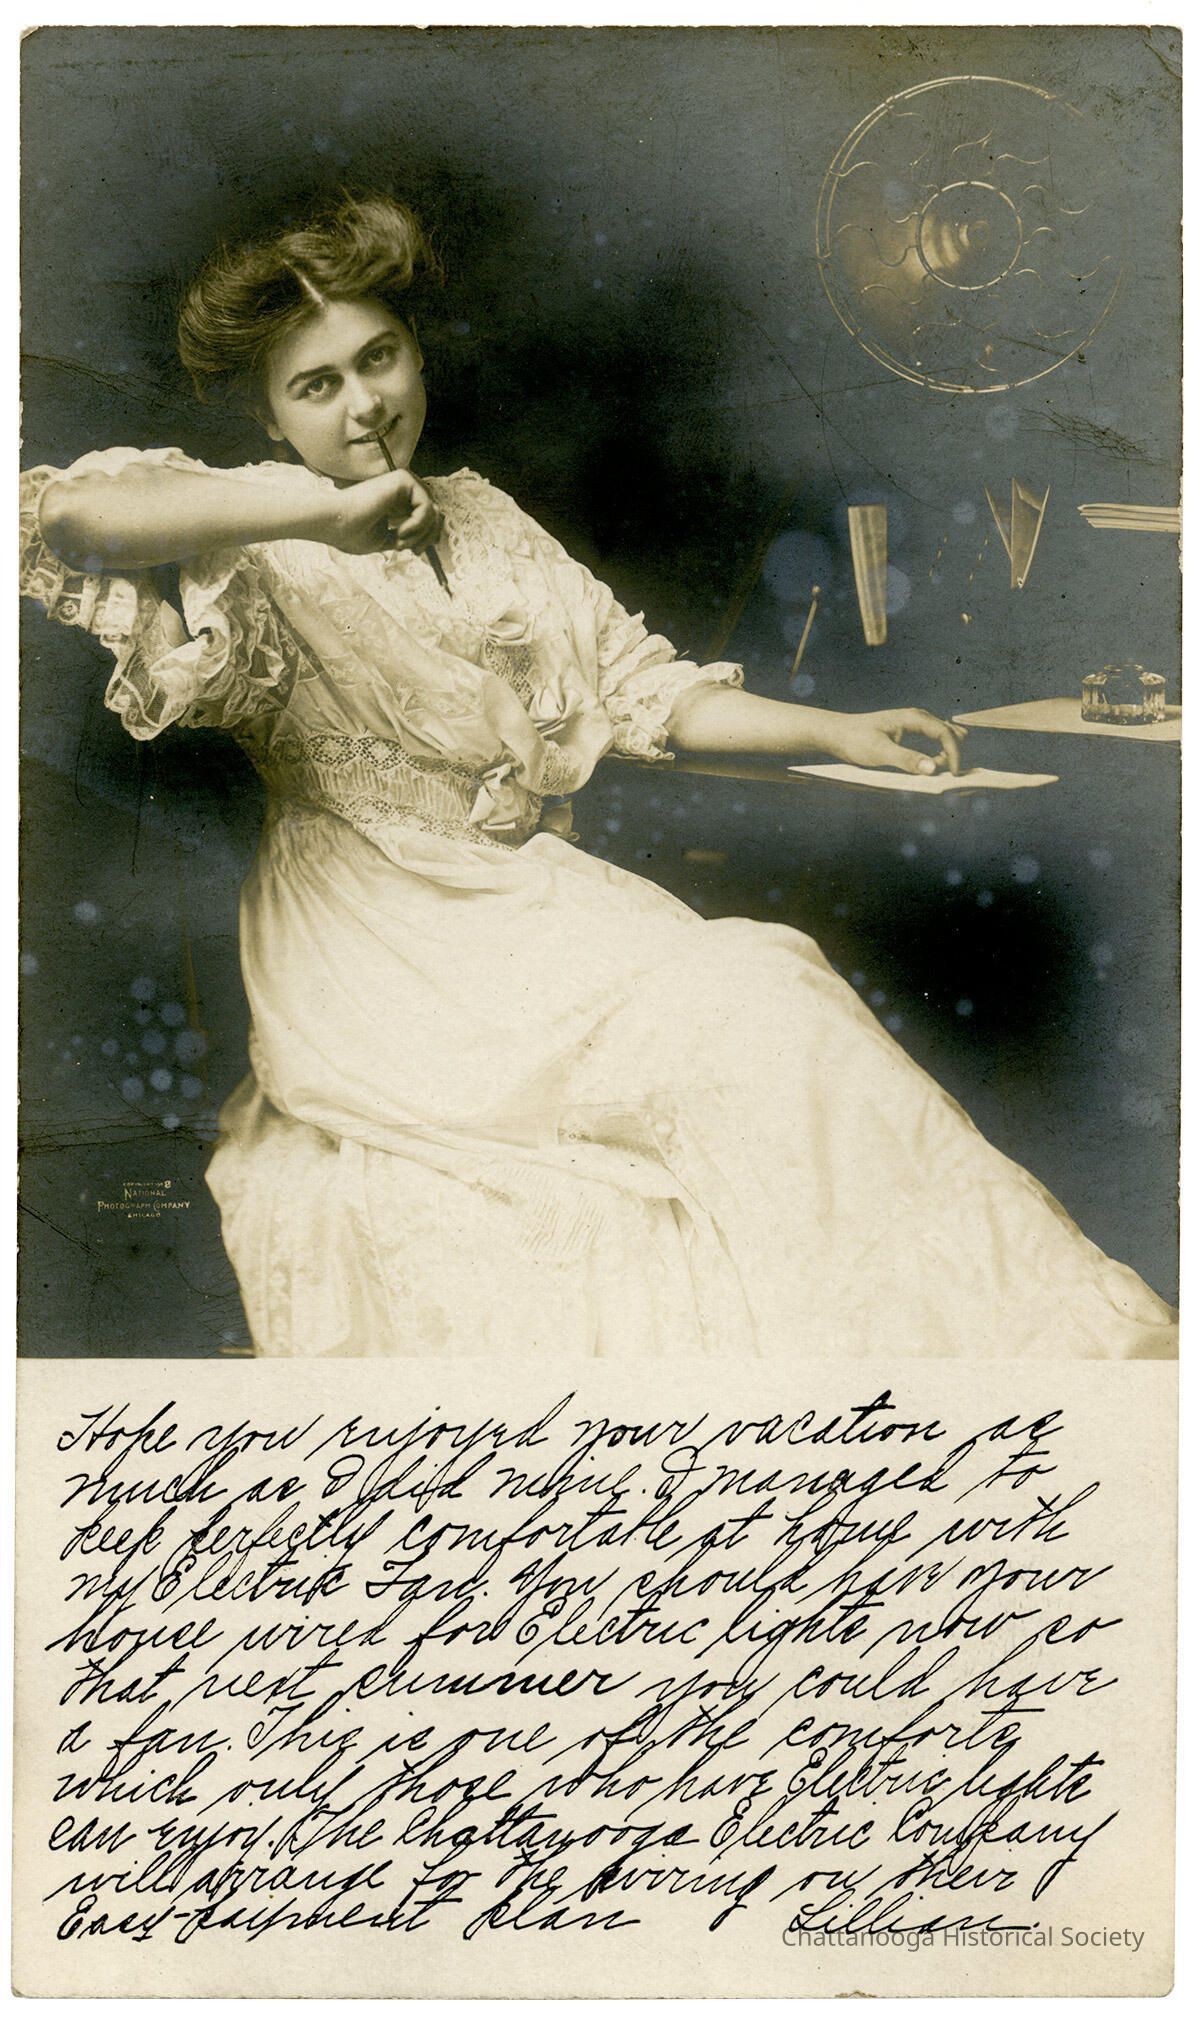 COPYRIGHT 1908
NATIONAL
PHOTOGRAPH COMPANY
CHICAGO
Hope you enjoyed your vacation as
much as I did mine. I managed to
keep perfectly comfortable at home with
my Electric Fan. You should have your
house wired for Electric lights now so
that next summer you could have
a fan. This is one of the comforts
which only those who have Electric lights
can enjoy. The Chattanooga Electric Company
will arrange for the wiring on their
Easy-payment plan Lillian.
Chattanooga Historical Society